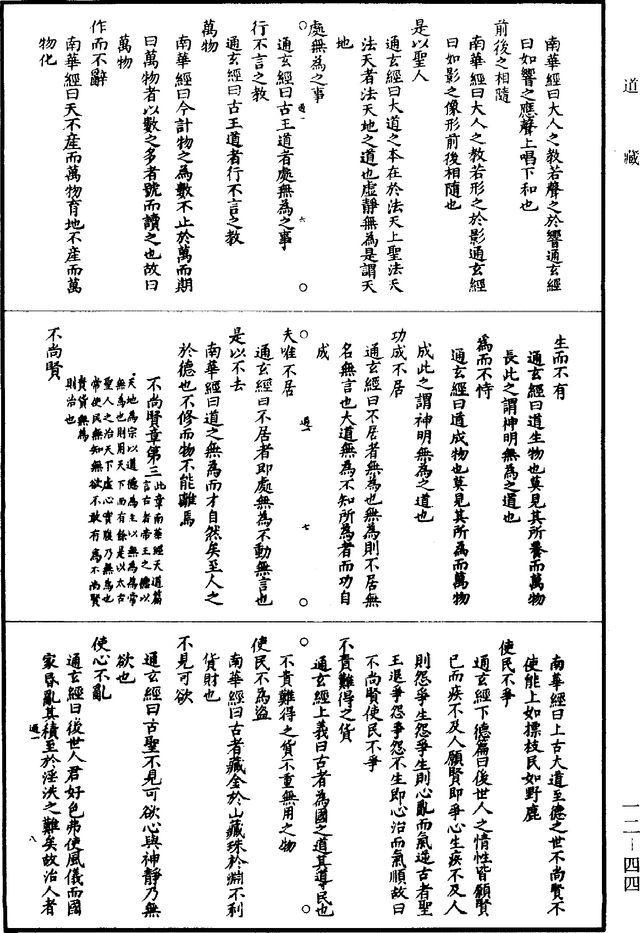 道藏
南華經曰大人之教若聲之於響通玄經
曰如響之應聲上唱下和也
前後之相隨
南華經曰大人之教若形之於影通玄經
曰如影之像形前後相隨也
是以聖人
通玄經曰大道之本在於法天上聖法天
法天者法天地之道也虛靜無為是謂天
地
處無為之事
通玄經曰古王道者處無為之事
行不言之教
通玄經曰古王道者行不言之教
萬物
南華經曰今計物之為數不止於萬而期
曰萬物者以數之多者號而讀之也故曰
萬物
作而不辭
南華經曰天不產而萬物育地不產而萬
物化
生而不有
通玄經曰道生物也莫見其所養而萬物
長此之謂神明無為之道也
為而不恃
通玄經曰道成物也莫見其所為而萬物
成此之謂神明無為之道也
功成不居
通玄經曰不居者無為也無為則不居無
名無言也大道無為不知所為者而功自
成
夫唯不居
通玄經曰不居者即處無為不動無言也
是以不去
南華經曰道之無為而才自然矣至人之
於德也不修而物不能離焉
不尚賢章第三
此章南華經天道篇
言古者帝王之德以
天地為宗以道德為主以無為為常
無為也則用天下而有餘是以太古
聖人之治天下虛心實腹乃無為也
常使民無知無欲不敢有為不尚賢
貴貨無為
則治也
不尚賢
南華經曰上古大道至德之世不尚賢不
使能上如摽枝民如野鹿
使民不爭
通玄經下德篇曰後世人之情性皆願賢
已而疾不及人願賢即爭心生疾不及人
則怨爭生怨爭生則心亂而氣逆古者聖
王退爭怨爭怨不生即心治而氣順故曰
不尚賢使民不爭
不貴難得之貨
通玄經上義曰古者為國之道其導民也
不貴難得之貨不重無用之物
使民不為盜
南華經曰古者藏金於山藏珠於淵不利
貨財也
不見可欲
通玄經曰古聖不見可欲心與神靜乃無
欲也
使心不亂
通玄經曰後世人君好色弗使風儀而國
家昏亂其積至於淫泆之難矣故治人者
通一 六
通一 七
通一 八
一二－四四